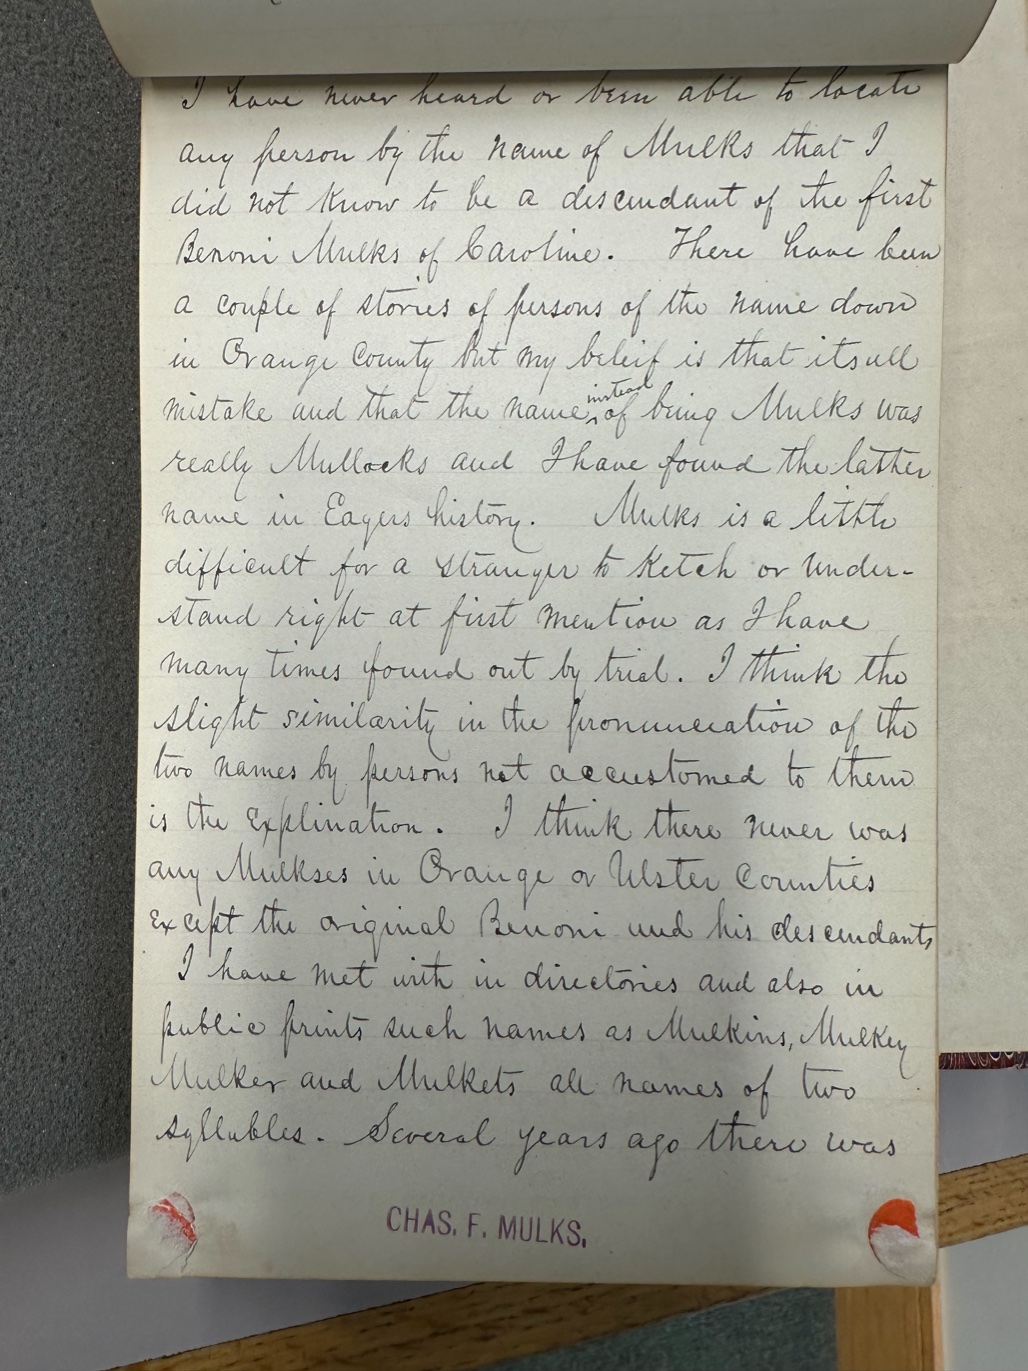 I have never heard or been able to locate
any person by the name of Mulks that I
did not know to be a descendant of the first
Benoni Mulks of Caroline. There have been
a couple of stories of persons of the name down
in Orange County but my beleif is that its all
mistake and that the name instead of being Mulks was
really Mullocks and I have found the latter
name in Eagers history. Mulks is a little
difficult for a stranger to Ketch or under-
stand right at first mention as I have
many times found out by trial. I think the
slight similarity in the pronunciation of the
two names by persons not accustomed to them
is the Explination. I think there never was
any Mulkses in Orange or Ulster Counties
Except the original Benoni and his descendants
I have met with in directories and also in
public prints such names as Mulkins, Mulkey
Mulker and Mulkets all names of two
syllables. Several years ago there was
CHAS. F. MULKS.